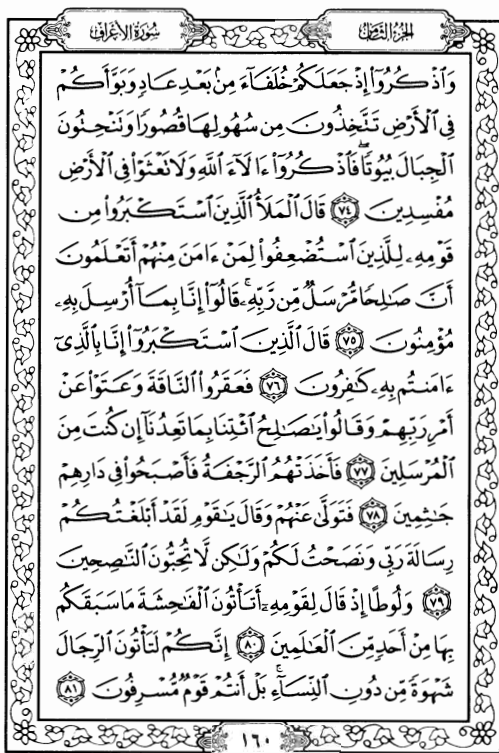 الجزء الثامن
سورة الأعراف
وَاذْكُرُوا إِذْ جَعَلَكُمْ خُلَفَاءَ مِنْ بَعْدِ عَادٍ وَبَوَّأَكُمْ
فِي الْأَرْضِ تَتَّخِذُونَ مِن سُهُولِهَا قُصُورًا وَتَنْحِتُونَ
الْجِبَالَ بُيُوتًا ۖ فَاذْكُرُوا ءَالَاءَ اللَّهِ وَلَا تَعْثَوْا فِي الْأَرْضِ
مُفْسِدِينَ ٧٤ قَالَ الْمَلَأُ الَّذِينَ اسْتَكْبَرُوا مِن
قَوْمِهِ لِلَّذِينَ اسْتُضْعِفُوا لِمَنْ ءَامَنَ مِنْهُمْ أَتَعْلَمُونَ
أَنَّ صَـٰلِحًا مُّرْسَلٌ مِّن رَّبِّهِ ۚ قَالُوا إِنَّا بِمَا أُرْسِلَ بِهِ
مُؤْمِنُونَ ٧٥ قَالَ الَّذِينَ اسْتَكْبَرُوا إِنَّا بِالَّذِي
ءَامَنتُم بِهِ كَـٰفِرُونَ ٧٦ فَعَقَرُوا النَّاقَةَ وَعَتَوْا عَنْ
أَمْرِ رَبِّهِمْ وَقَالُوا يَـٰصَـٰلِحُ ائْتِنَا بِمَا تَعِدُنَا إِن كُنتَ مِنَ
الْمُرْسَلِينَ ٧٧ فَأَخَذَتْهُمُ الرَّجْفَةُ فَأَصْبَحُوا فِي دَارِهِمْ
جَـٰثِمِينَ ٧٨ فَتَوَلَّىٰ عَنْهُمْ وَقَالَ يَـٰقَوْمِ لَقَدْ أَبْلَغْتُكُمْ
رِسَالَةَ رَبِّي وَنَصَحْتُ لَكُمْ وَلَـٰكِن لَّا تُحِبُّونَ النَّـٰصِحِينَ
٧٩ وَلُوطًا إِذْ قَالَ لِقَوْمِهِ أَتَأْتُونَ الْفَـٰحِشَةَ مَا سَبَقَكُم
بِهَا مِنْ أَحَدٍ مِّنَ الْعَـٰلَمِينَ ٨٠ إِنَّكُمْ لَتَأْتُونَ الرِّجَالَ
شَهْوَةً مِّن دُونِ النِّسَاءِ ۚ بَلْ أَنتُمْ قَوْمٌ مُّسْرِفُونَ ٨١
١٦٠